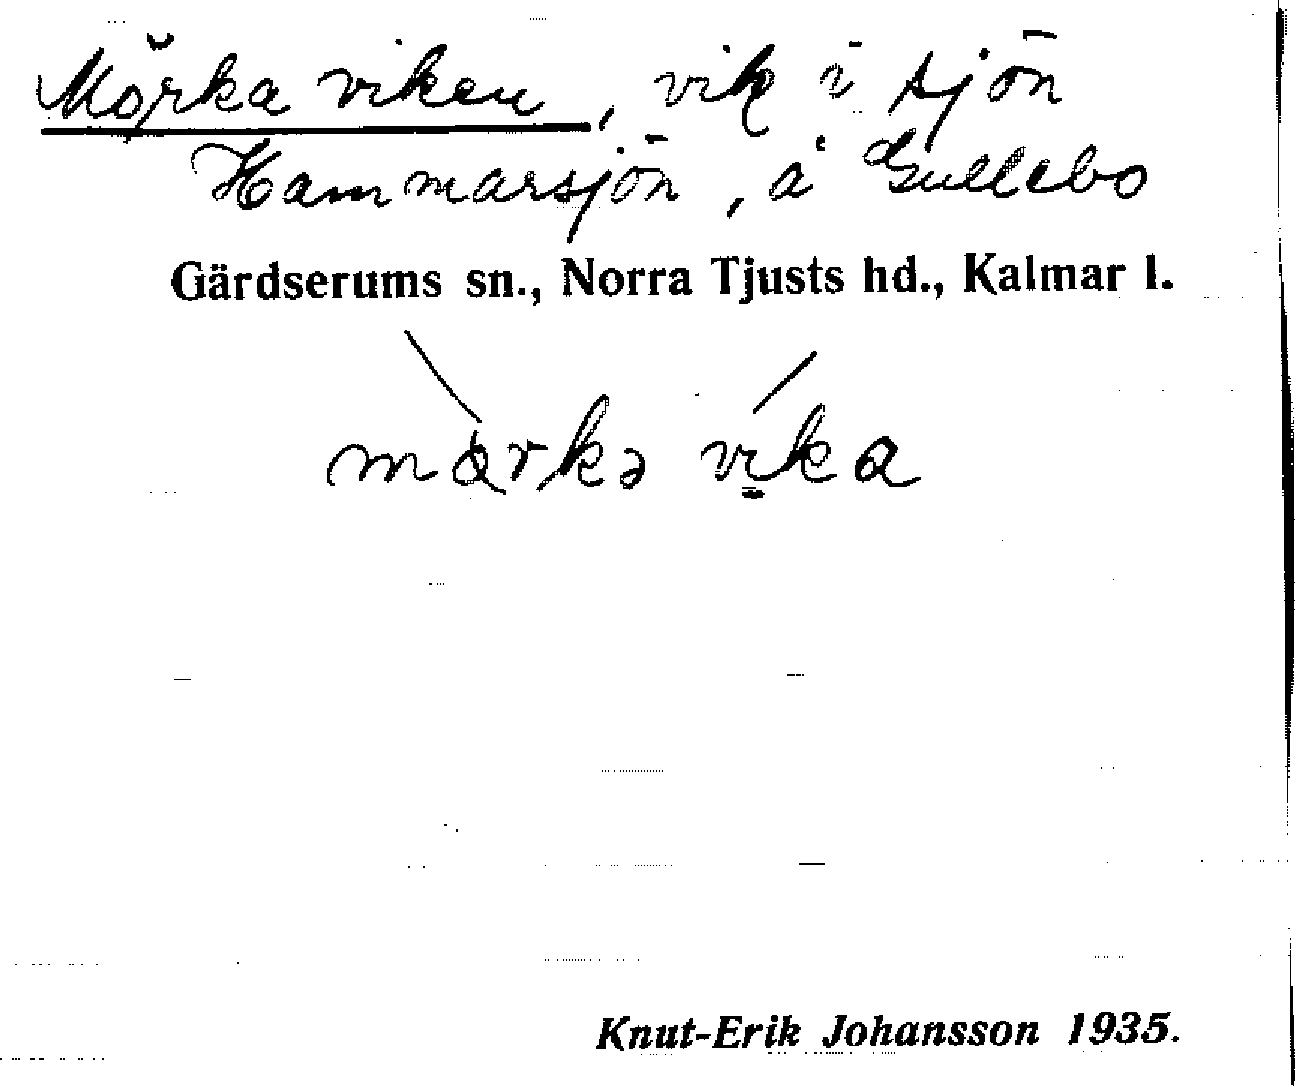 Mörka viken, vik i sjön
Hammarsjön, å Gullebo
Gärdserums sn., Norra Tjusts hd., Kalmar l.
vika
Knut-Erik Johansson 1935.